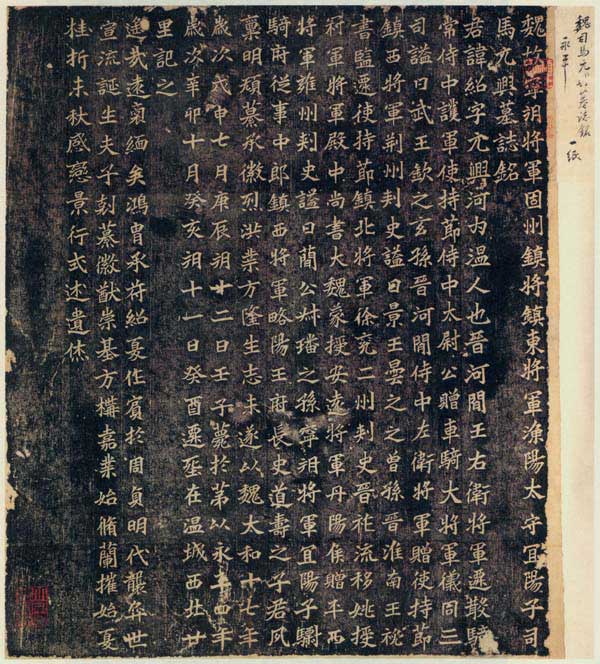 魏司馬元興墓誌銘 一紙
永平
魏故寧朔將軍固州鎮將鎮東將軍漁陽太守宜陽子司
馬元興墓誌銘
君諱紹字元興河內溫人也晉河間王右衛將軍遷散騎
常侍中護軍使持節侍中太尉公贈車騎大將軍儀同三
司謚曰武王欽之玄孫晉河間侍中左衛將軍贈使持節
鎮西將軍荊州刾史謚曰景王曇之之曾孫晉淮南王秘
書監遷使持節鎮北將軍徐兗二州刾史晉祚流移姚授
冠軍將軍殿中尚書大魏蒙授安遠將軍丹陽侯贈平西
將軍雍州刾史謚曰簡公叔璠之孫寧朔將軍宜陽子驃
騎府從事中郎鎮西將軍略陽王府長史道壽之子君夙
稟明頴纂承徽烈洪業方隆生志未遂以魏太和十七年
歲次戊申七月庚辰朔廿二日壬子薨於第以永平四年
歲次辛卯十月癸亥朔十一日癸酉遷塟在溫城西北廿
里記之
遙哉遠裔緬矣鴻胄承苻紹夏作賓於周貞明代襲弈世
宣流誕生夫子剋纂徽猷崇基方構嘉業始脩蘭摧始夏
桂折未秋感戀景行式述遺休